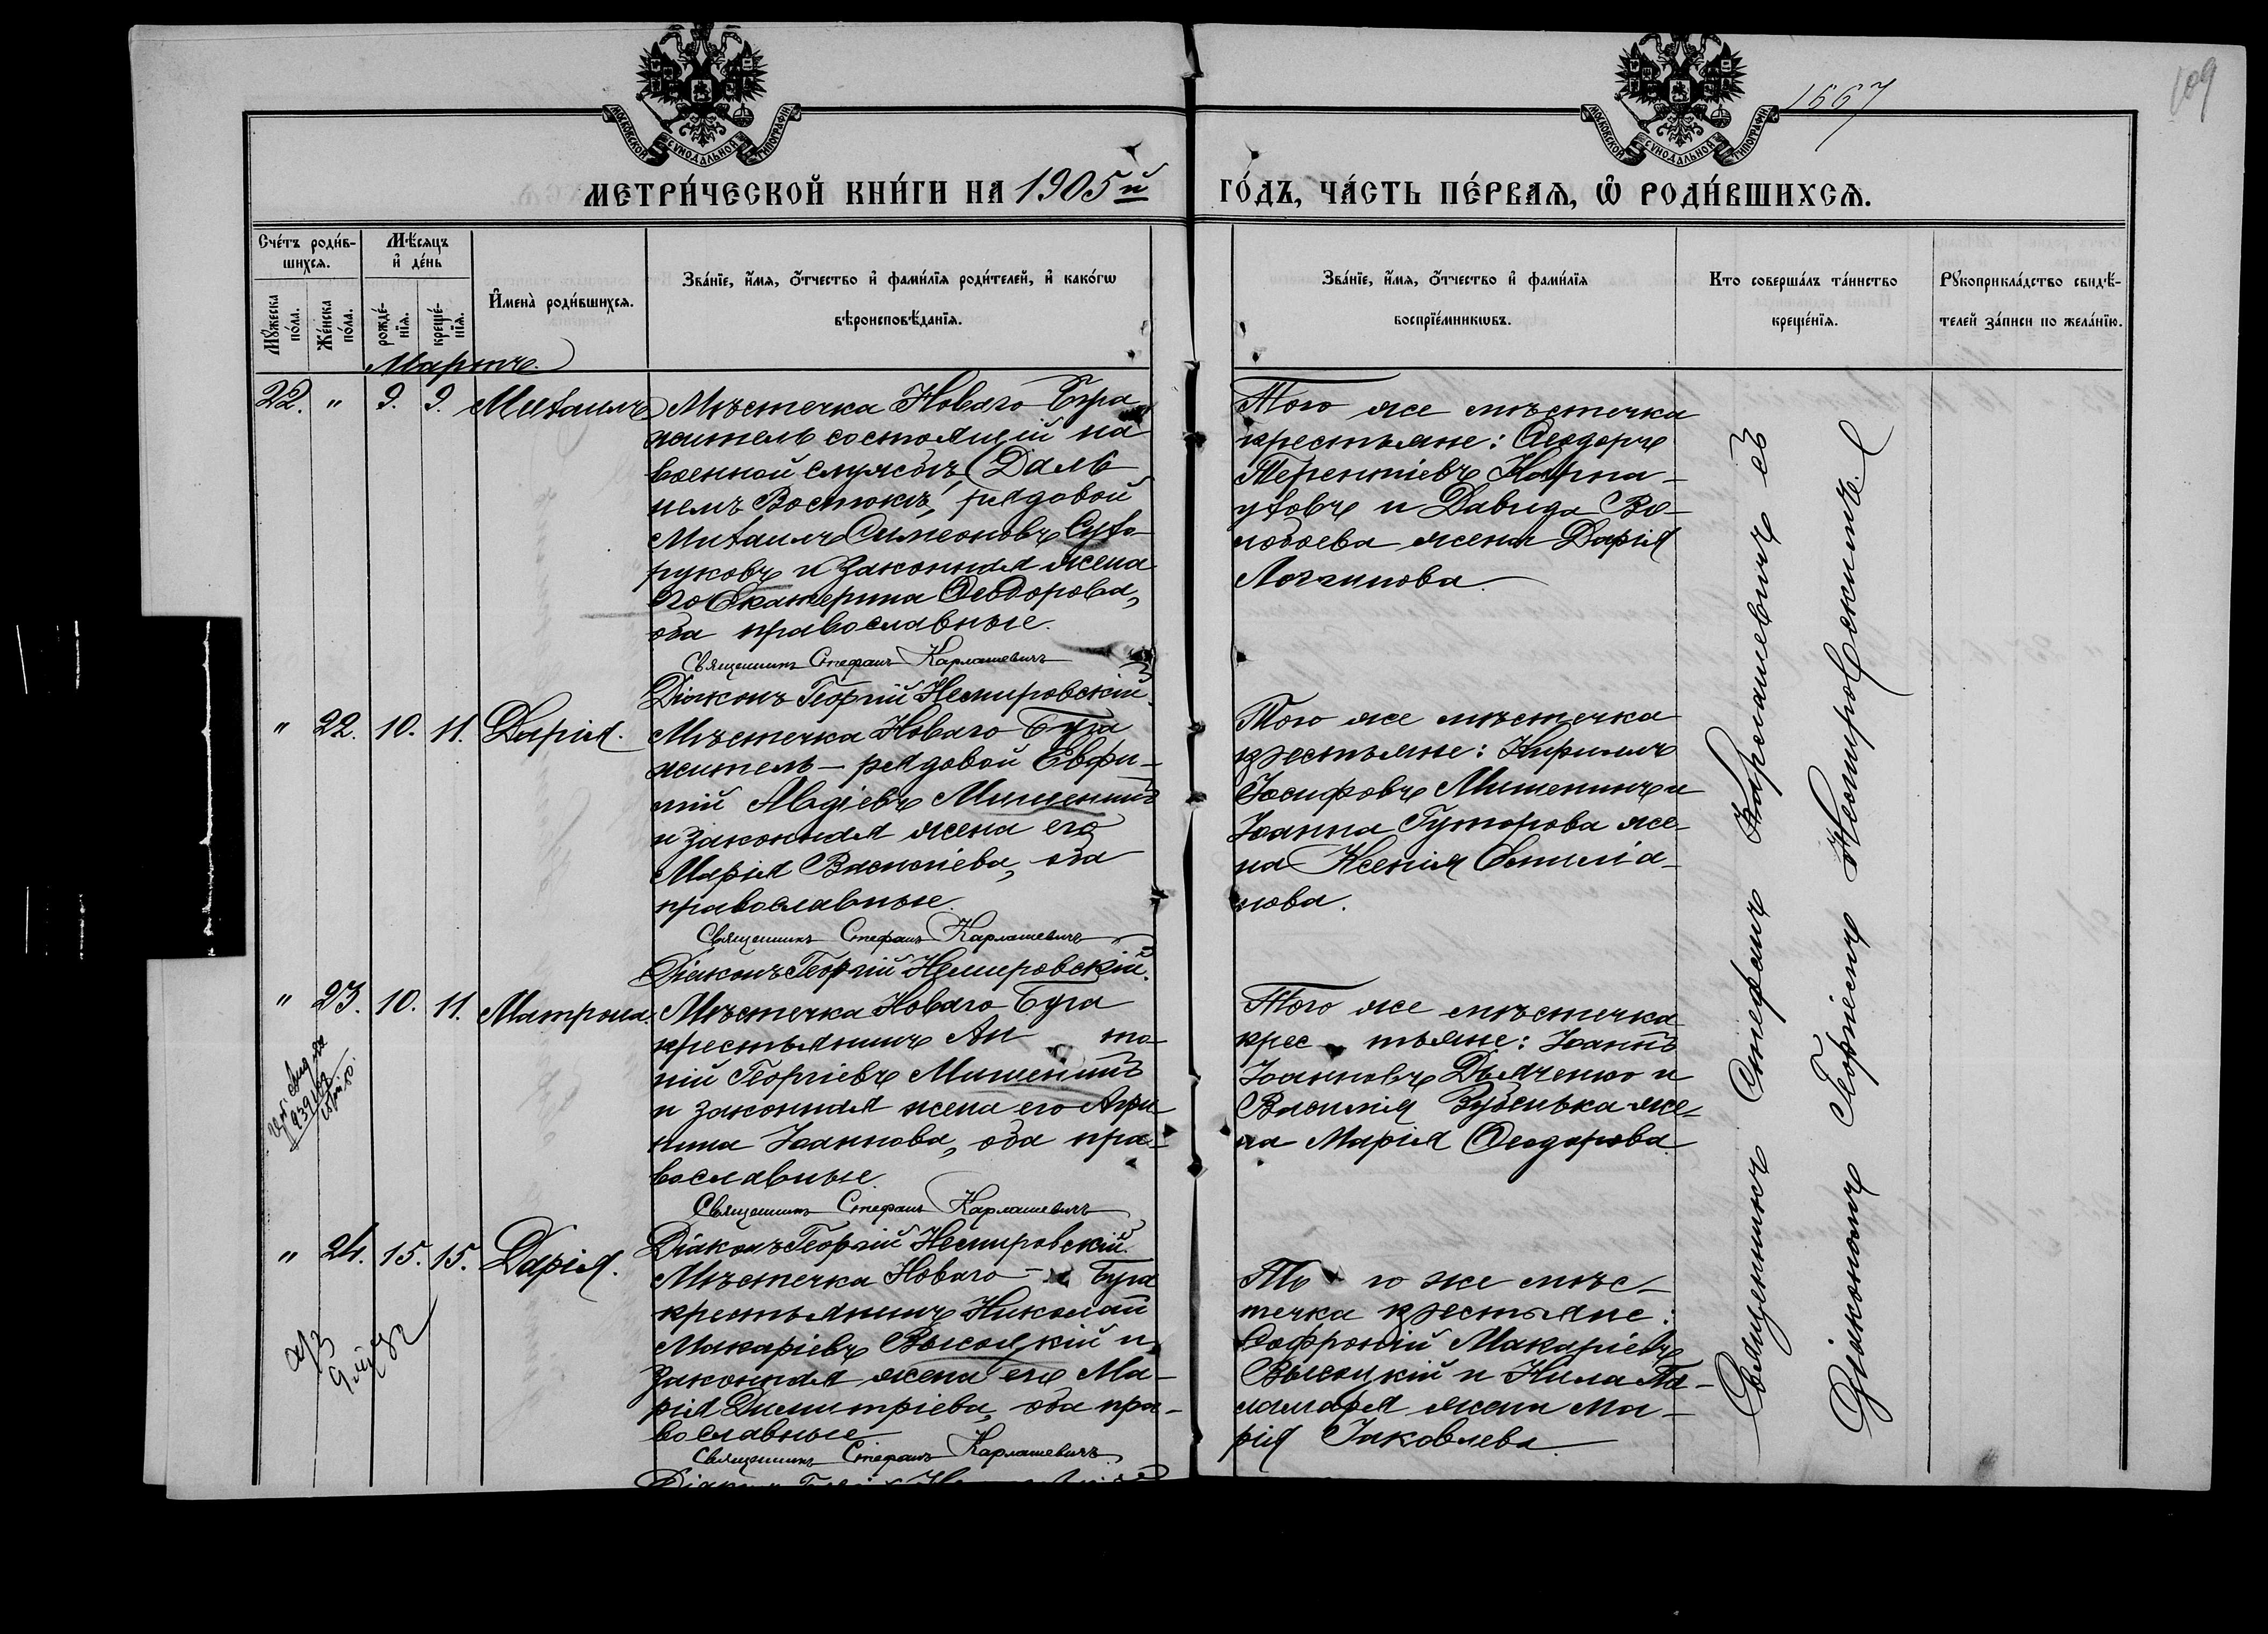 1667
109
МОСКОВСКОЙ СУНОДАЛЬНОЙ ТИПОГРАФІИ
МОСКОВСКОЙ СУНОДАЛЬНОЙ ТИПОГРАФІИ
МЕТРИ́ЧЕСКОЙ КНИ́ГИ НА 1905й ГО́ДЪ, ЧА́СТЬ ПЕ́РВАѦ, Ѡ РОДИ́ВШИХСѦ.
Сче́тъ роди́в-
шихсѧ.
Мѣ́сѧцъ
и҆ де́нь
Мꙋ́жеска
по́ла.
Же́нска
по́ла.
рожде́-
нїѧ.
креще́-
нїѧ.
И҆мена̀ роди́вшихсѧ.
Зва́нїе, и҆́мѧ, ѻ҆́тчество и҆ фами́лїѧ роди́телей, и҆ како́гѡ
вѣроисповѣ́данїѧ.
Зва́нїе, и҆́мѧ, ѻ҆́тчество и҆ фами́лїѧ
воспрїе́мникѡвъ.
Кто соверша́лъ та́инство
креще́нїѧ.
Рꙋкоприкла́дство свидѣ́-
телей за́писи по жела́нїю.
Мартъ.
22. " 9. 9. Михаилъ
Мѣстечка Новаго Буга
житель состоящій на
военной службѣ (Даль
немъ Востокѣ, рядовой
Михаилъ Симеоновъ Сухо-
руковъ и законная жена
его Екатерина Ѳеодорова,
оба православные.
Священникъ Стефанъ Карлашевичъ
Діаконъ Георгій Немировскій.
Того же мѣстечка
крестьяне: Ѳеодоръ
Терентіевъ
и Давида Во-
лобоева жена Дарія
Логгинова.
" 22. 10. 11. Дарія.
Мѣстечка Новаго Буга
житель - рядовой Евфи-
мій Авдіевъ Мишенинъ
и законная жена его
Марія Василіева, оба
православные.
Священникъ Стефанъ Карлашевичъ
Діаконъ Георгій Немировскій.
Того же мѣстечка
крестьяне: Кириллъ
Іосифовъ Мишенинъ и
Іоанна Гуторова же-
на Ксенія Емиліа-
нова.
" 23. 10. 11. Матрона.
Мѣстечка Новаго Буга
крестьянинъ Ан то-
ній Георгіевъ Мишенинъ
и законная жена его Агри-
пина Іоаннова, оба пра-
вославные.
Священникъ Стефанъ Карлашевичъ
Діаконъ Георгій Немировскій.
Того же мѣстечка
крес тьяне: Іоаннъ
Іоанновъ Дьяченко и
Василія Зубенька же-
на Марія Ѳеодорова.
" 24. 15. 15. Дарія.
Мѣстечка Новаго - Буга
крестьянинъ Николай
Макаріевъ Высоцкій и
законная жена его Ма-
рія Димитріева, оба пра-
вославные
Священникъ Стефанъ Карлашевичъ.
То го же мѣс-
течка крестьяне:
Софроній Макаріевъ
Высоцкій и Нила Па-
ламаря жена Ма-
рія Іаковлева.
Священникъ Стефанъ Карлашевичъ съ
Діакономъ Георгіемъ Немировскимъ.